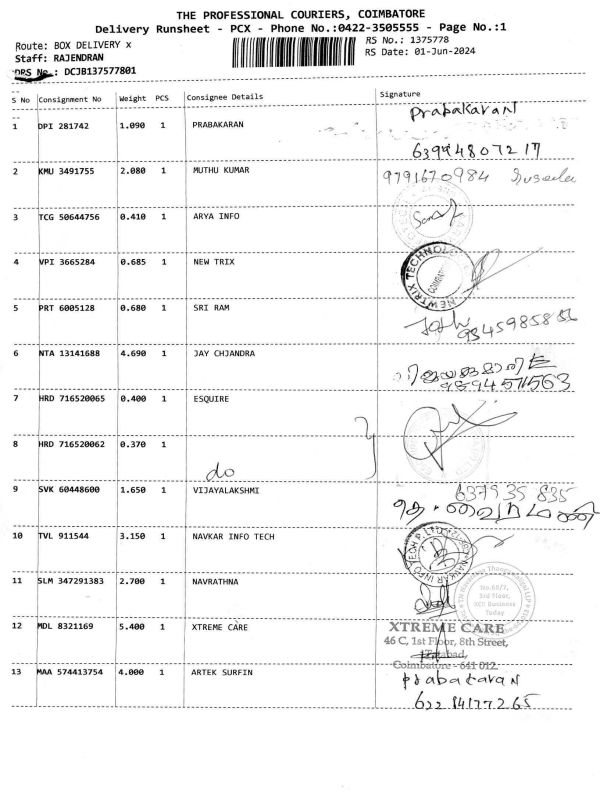 THE PROFESSIONAL COURIERS, COIMBATORE
Delivery Runsheet - PCX - Phone No.:0422-3505555 - Page No.:1
Route: BOX DELIVERY x
RS No.: 1375778
Staff: RAJENDRAN
RS Date: 01-Jun-2024
DRS No.: DCJB137577801
S No Consignment No Weight PCS Consignee Details Signature
Prabakaran
1 DPI 281742 1.090 1 PRABAKARAN
63994807217
2 KMU 3491755 2.080 1 MUTHU KUMAR
9791670984
3 TCG 50644756 0.410 1 ARYA INFO
4 VPI 3665284 0.685 1 NEW TRIX
NEWTRIX TECHNOLO
5 PRT 6005128 0.680 1 SRI RAM
6 NTA 13141688 4.690 1 JAY CHJANDRA
9894571563
7 HRD 716520065 0.400 1 ESQUIRE
8 HRD 716520062 0.370 1
do
9 SVK 60448600 1.650 1 VIJAYALAKSHMI
637935 835
10 TVL 911544 3.150 1 NAVKAR INFO TECH
NAVKAR INFO TECH P. LTD
11 SLM 347291383 2.700 1 NAVRATHNA
No.60/2,
3rd Floor,
XCE Business
Today
12 MDL 8321169 5.400 1 XTREME CARE
XTREME CARE
46 C, 1st Floor, 8th Street,
Coimbatore - 641 012.
13 MAA 574413754 4.000 1 ARTEK SURFIN
prabakaran